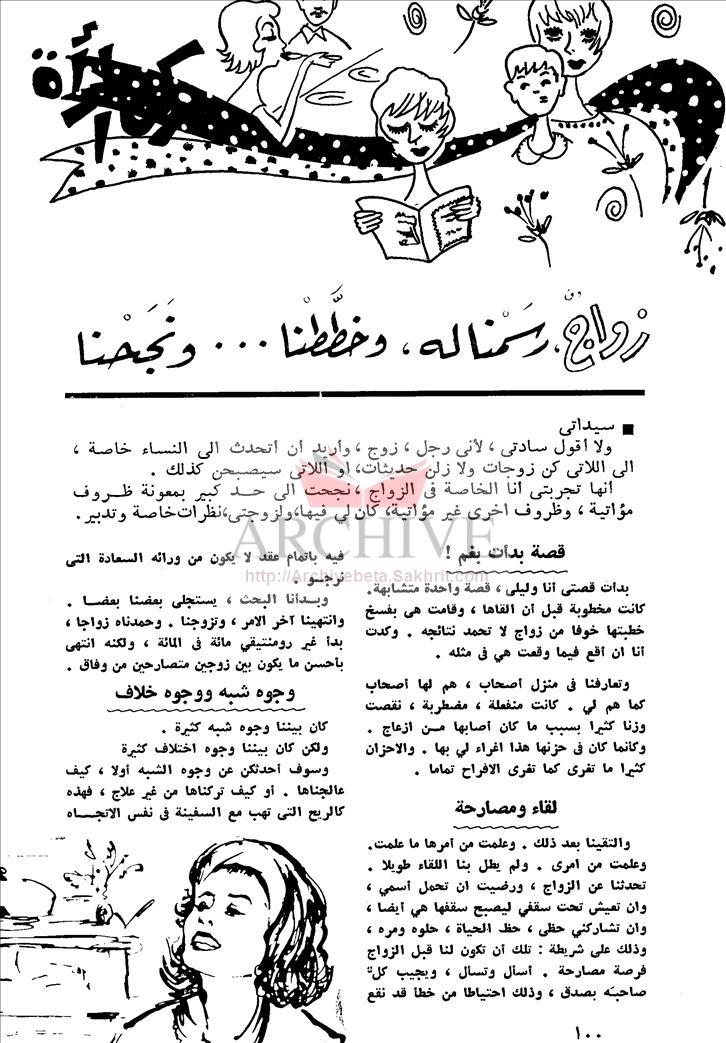 ركن المرأة
زواجٌ، رسَمْناله، وخطَّطْنا... ونَجَحْنا
■ سيداتى
ولا أقول سادتى ، لأنى رجل ، زوج ، وأريد أن أتحدث الى النساء خاصة ،
الى اللاتى كن زوجات ولا زلن حديثات، او اللاتى سيصبحن كذلك .
انها تجربتى أنا الخاصة فى الزواج ، نجحت الى حد كبير بمعونة ظروف
مؤاتية ، وظروف اخرى غير مؤاتية، كان لي فيها،ولزوجتى،نظرات خاصة وتدبير.
ARCHIVE
http://Archivebeta.Sakhrit.com
قصة بدأت بغم !
بدأت قصتى أنا وليلى ، قصة واحدة متشابهة.
كانت مخطوبة قبل أن القاها ، وقامت هى بفسخ
خطبتها خوفا من زواج لا تحمد نتائجه . وكدت
أنا ان أقع فيما وقعت هي فى مثله .
وتعارفنا فى منزل أصحاب ، هم لها أصحاب
كما هم لي . كانت منفعلة ، مضطربة ، نقصت
وزنا كثيرا بسبب ما كان أصابها مـن ازعاج .
وكأنما كان فى حزنها هذا اغراء لي بها . والاحزان
كثيرا ما تغرى كما تغرى الافراح تماما .
لقاء ومصارحة
والتقينا بعد ذلك . وعلمت من أمرها ما علمت.
وعلمت من امرى . ولم يطل بنا اللقاء طويلا .
تحدثنا عن الزواج ، ورضيت ان تحمل أسمي ،
وان تعيش تحت سقفي ليصبح سقفها هي أيضا ،
وان تشاركني حظى ، حظ الحياة ، حلوه ومره ،
وذلك على شريطة : تلك أن تكون لنا قبل الزواج
فرصة مصارحة . أسأل وتسأل ، ويجيب كلّ
صاحبَه بصدق ، وذلك احتياطا من خطأ قد نقع
فيه باتمام عقد لا يكون من ورائه السعادة التى
نرجـو .
وبـدأنا البحث ، يستجلى بعضنا بعضـا .
وانتهينا آخر الامر ، وتزوجنا . وحمدناه زواجا ،
بدأ غير رومنتيقي مائة فى المائة ، ولكنه انتهى
بأحسن ما يكون بين زوجين متصارحين من وفاق .
وجوه شبه ووجوه خلاف
كان بيننا وجوه شبه كثيرة .
ولكن كان بيننا وجوه اختلاف كثيرة
وسوف أحدثكن عن وجوه الشبه أولا ، كيف
عالجناها . أو كيف تركناها من غير علاج ، فهذه
كالريح التى تهب مع السفينة فى نفس الاتجـاه
١٠٠